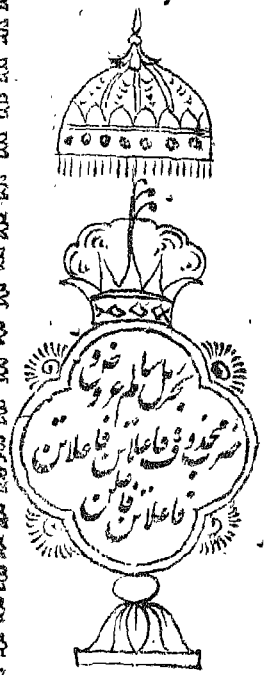 بحر رمل سالم عروض و
ضرب محذوف فاعلاتن فاعلاتن
فاعلاتن فاعلن